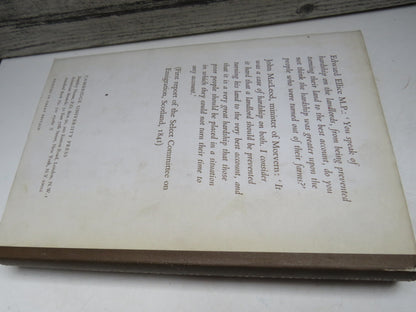 Edward Ellice M.P.: 'You speak of
hardship on the landlords, from being prevented
turning their land to the best account, do you
not think the hardship was greater upon the
people who were turned out of their farms?'
John MacLeod, minister of Morvern: 'It
was a case of hardship on both. I consider
it hard that a landlord should be prevented
turning his land to the very best account, and
that it is a very great hardship that those
poor people should be placed in a situation
in which they could not turn their time to
any account.'
(First report of the Select Committee on
Emigration, Scotland, 1841)
CAMBRIDGE UNIVERSITY PRESS